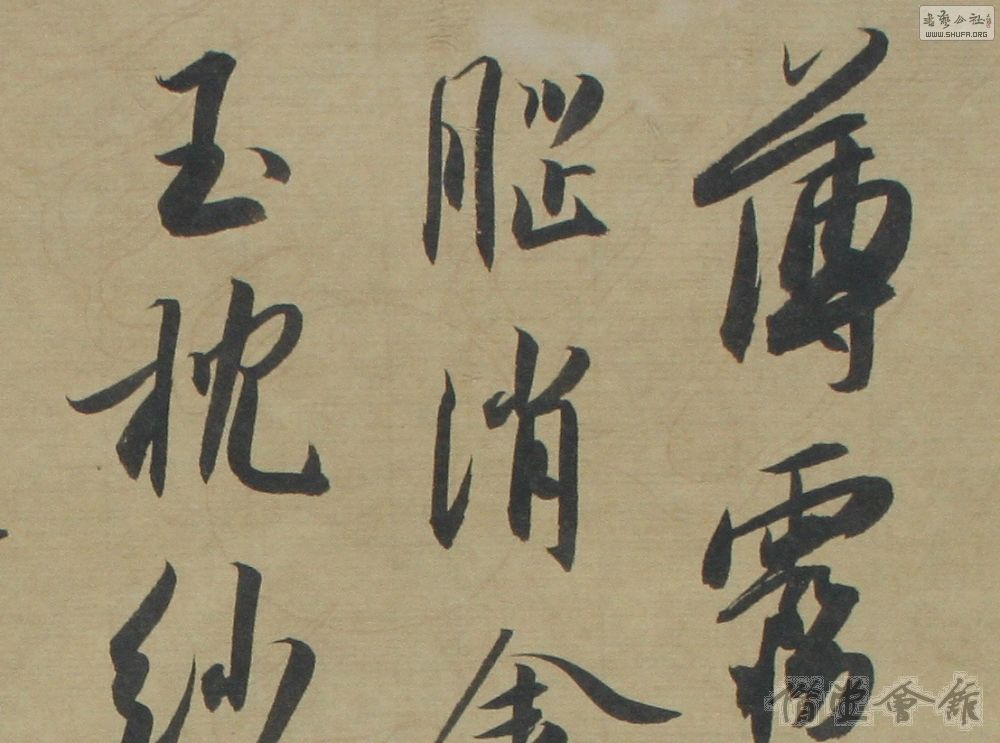 薄霧
腦消金
玉枕紗
书艺公社
WWW.SHUFA.ORG